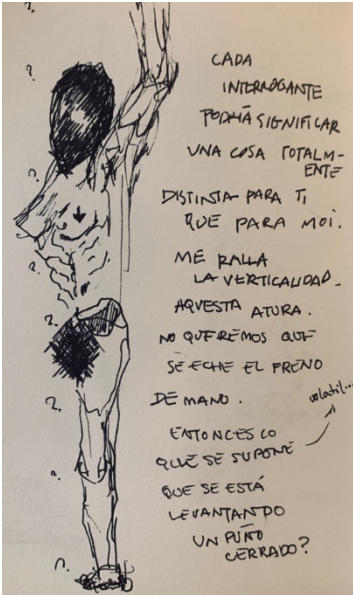 CADA
INTERROGANTE
PODRÍA SIGNIFICAR
UNA COSA TOTALM-
ENTE
DISTINTA PARA TI
QUE PARA MOI.
ME RALLA
LA VERTICALIDAD.
AQUESTA ATURA.
NO QUEREMOS QUE
SE ECHE EL FRENO
DE MANO.
volatil...
ENTONCES LO
QUE SE SUPONE
QUE SE ESTÁ
LEVANTANDO
UN PUÑO
CERRADO?
?
?
?
?
?
?
?